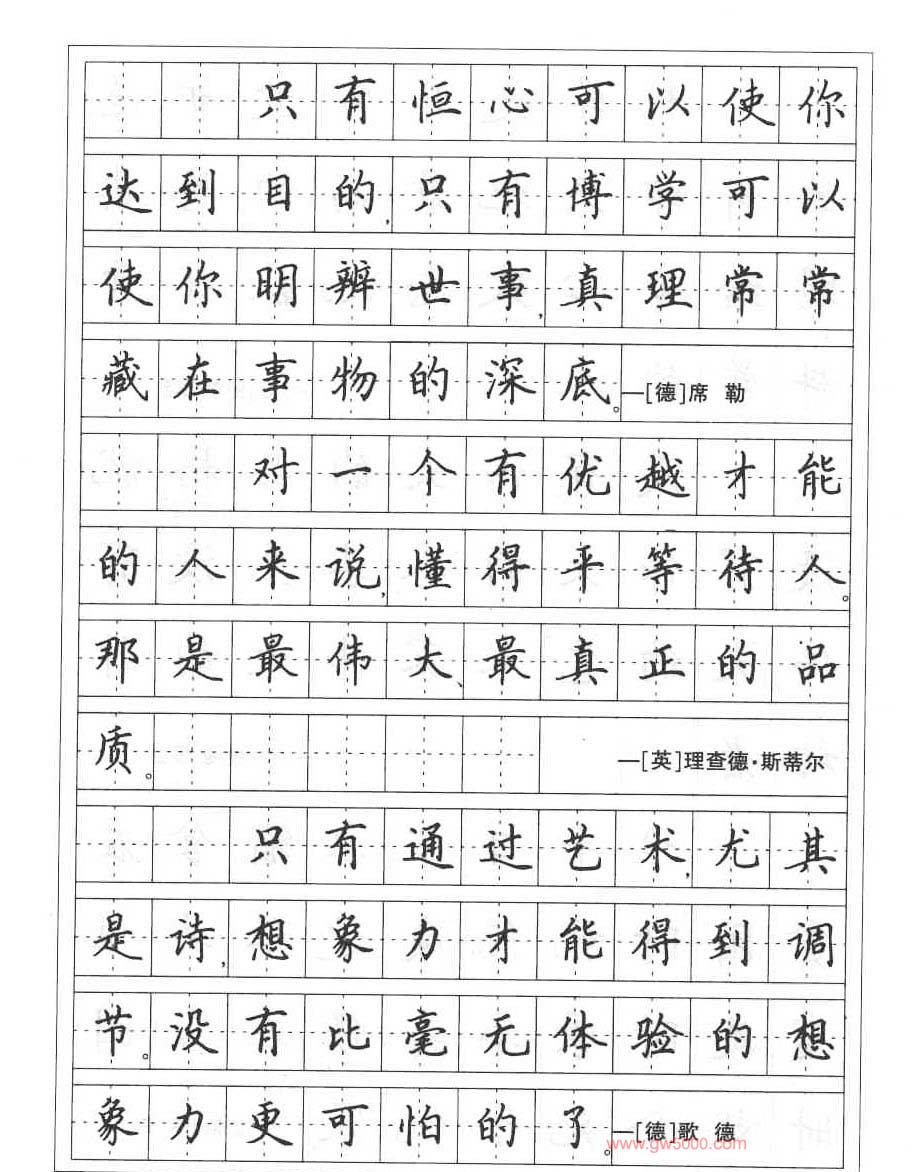 只有恒心可以使你
达到目的,只有博学可以
使你明辨世事,真理常常
藏在事物的深底。—[德]席 勒
对一个有优越才能
的人来说,懂得平等待人。
那是最伟大、最真正的品
质。 —[英]理查德·斯蒂尔
只有通过艺术,尤其
是诗,想象力才能得到调
节。没有比毫无体验的想
象力更可怕的了。—[德]歌 德
www.gw5000.com